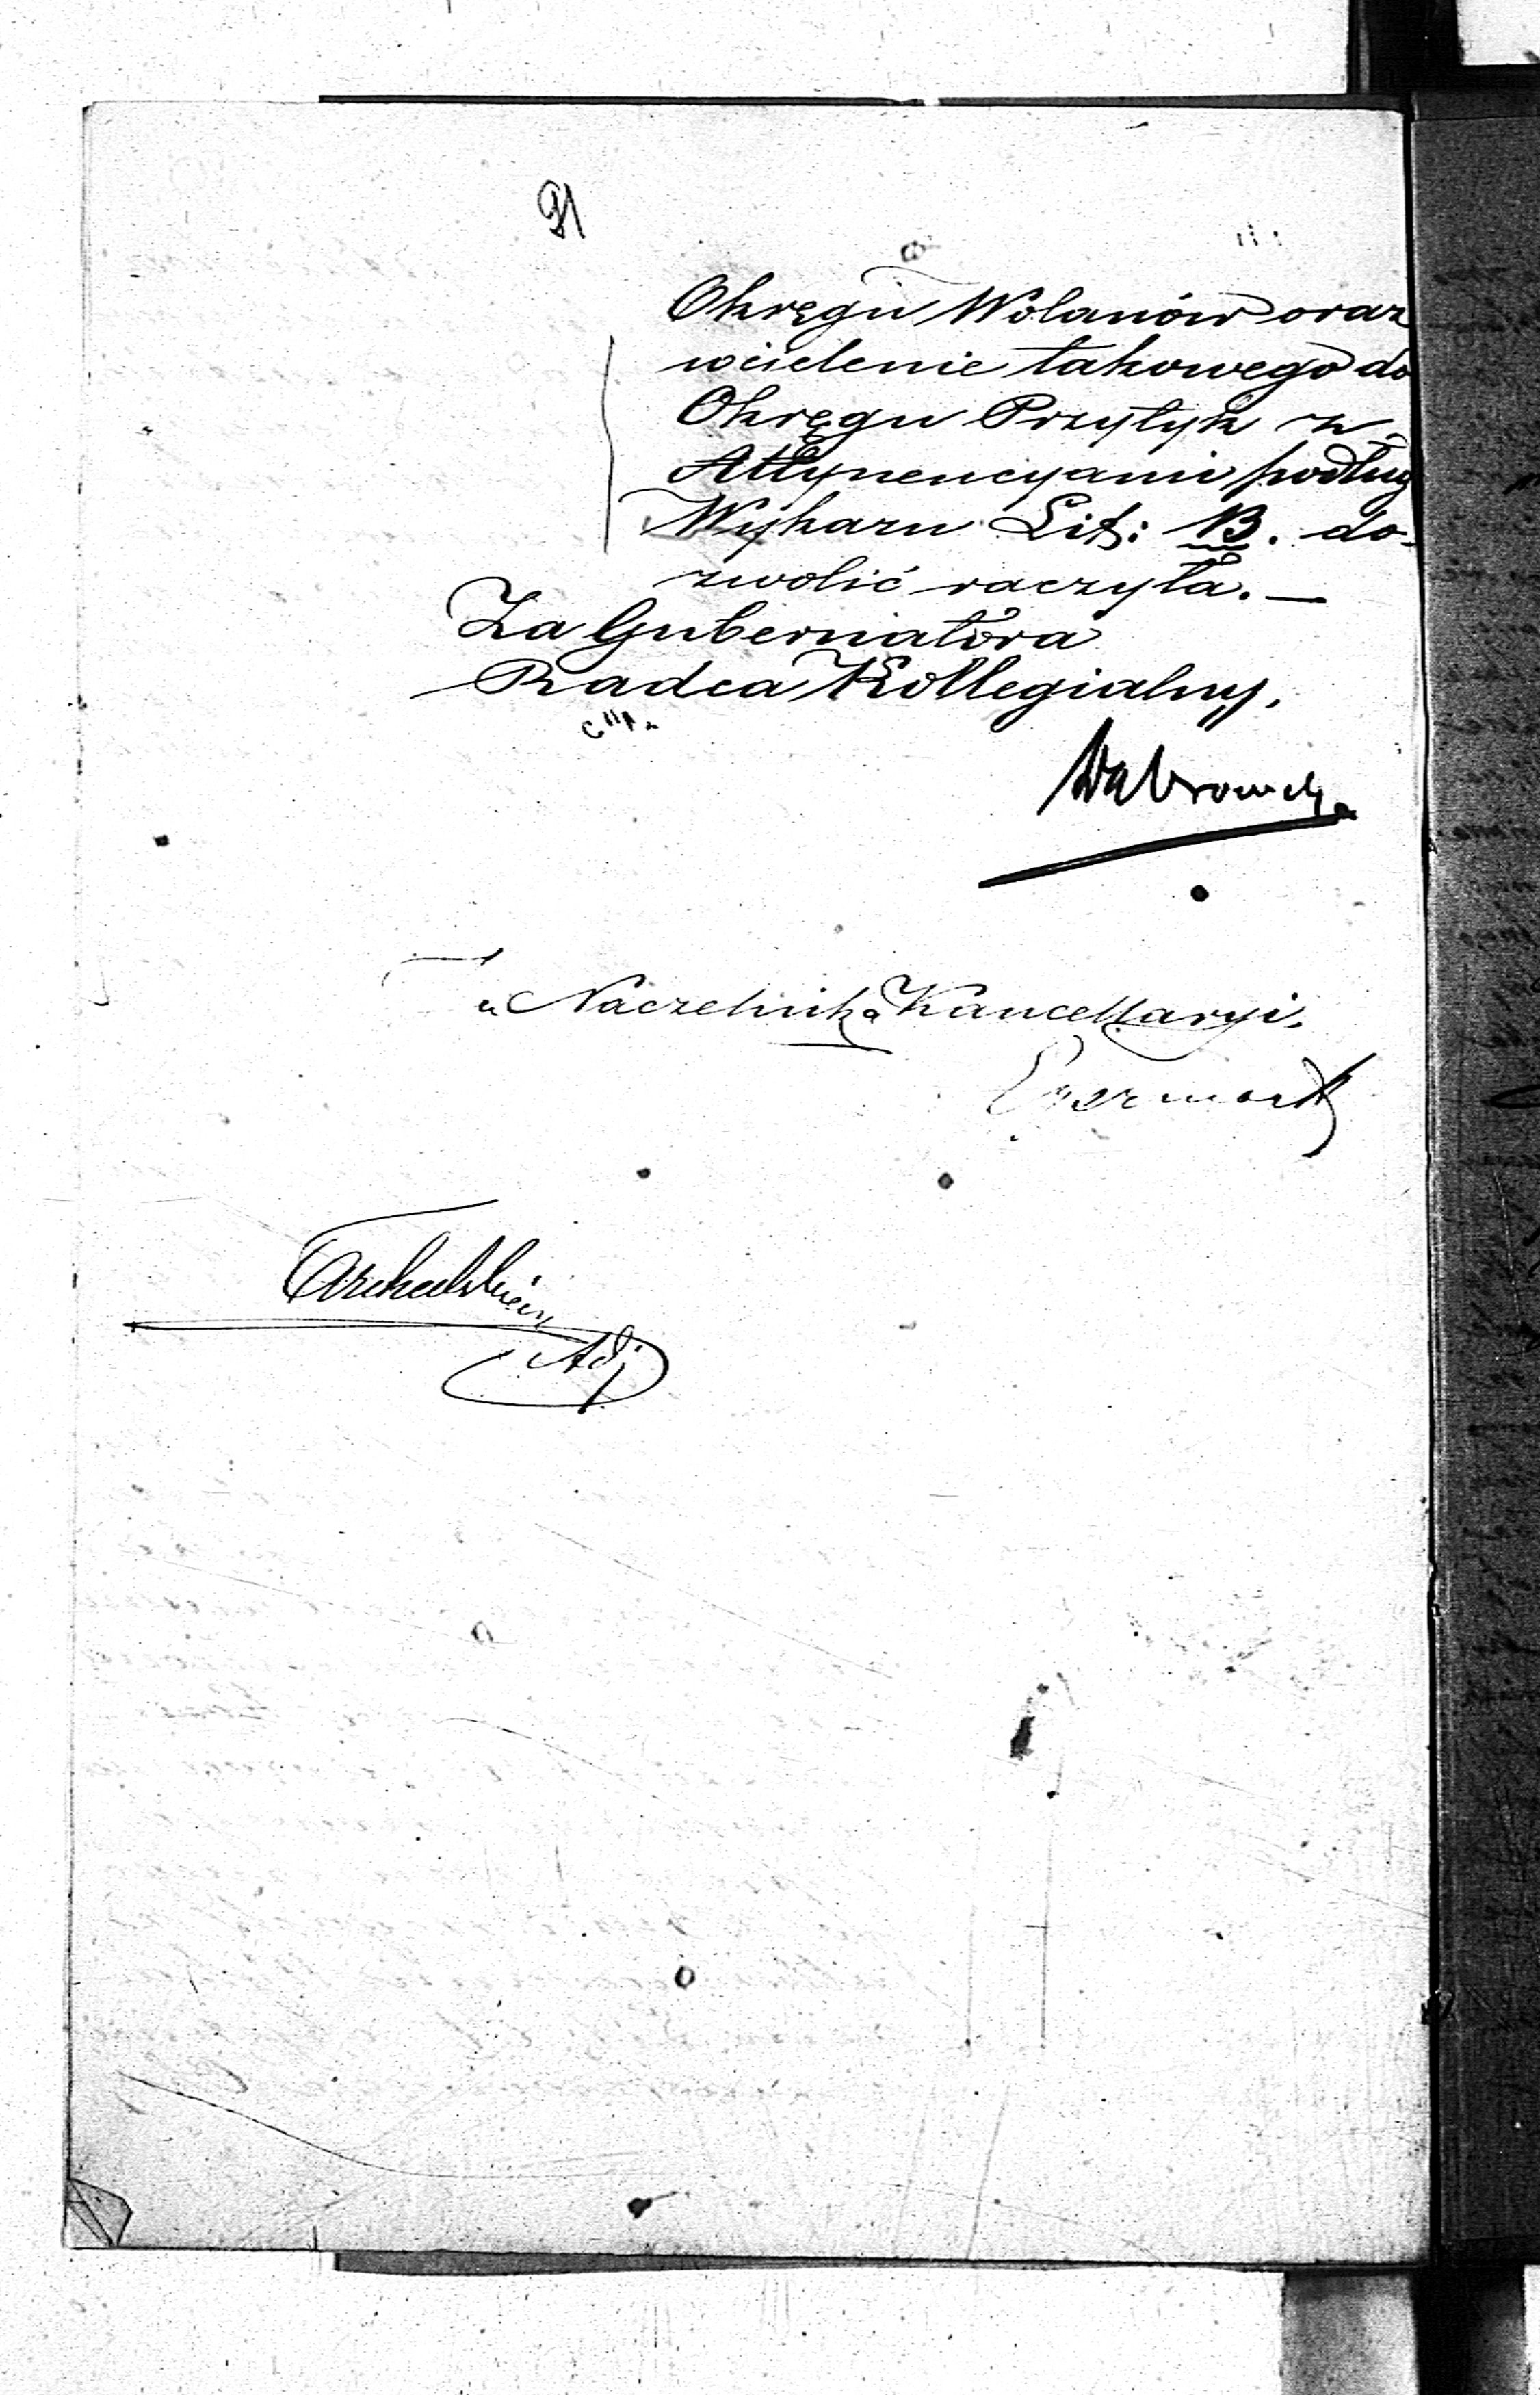 Okręgu Wolanów oraz
wcielenie takowego do
Okręgu Przytyk z
Attynencyami podług
Wykazu Lit: B. do-
zwolić raczyła. —
Za Gubernatora
Radca Kollegialny,
Dąbrowski
Naczelnika Kancellaryi,
Adj